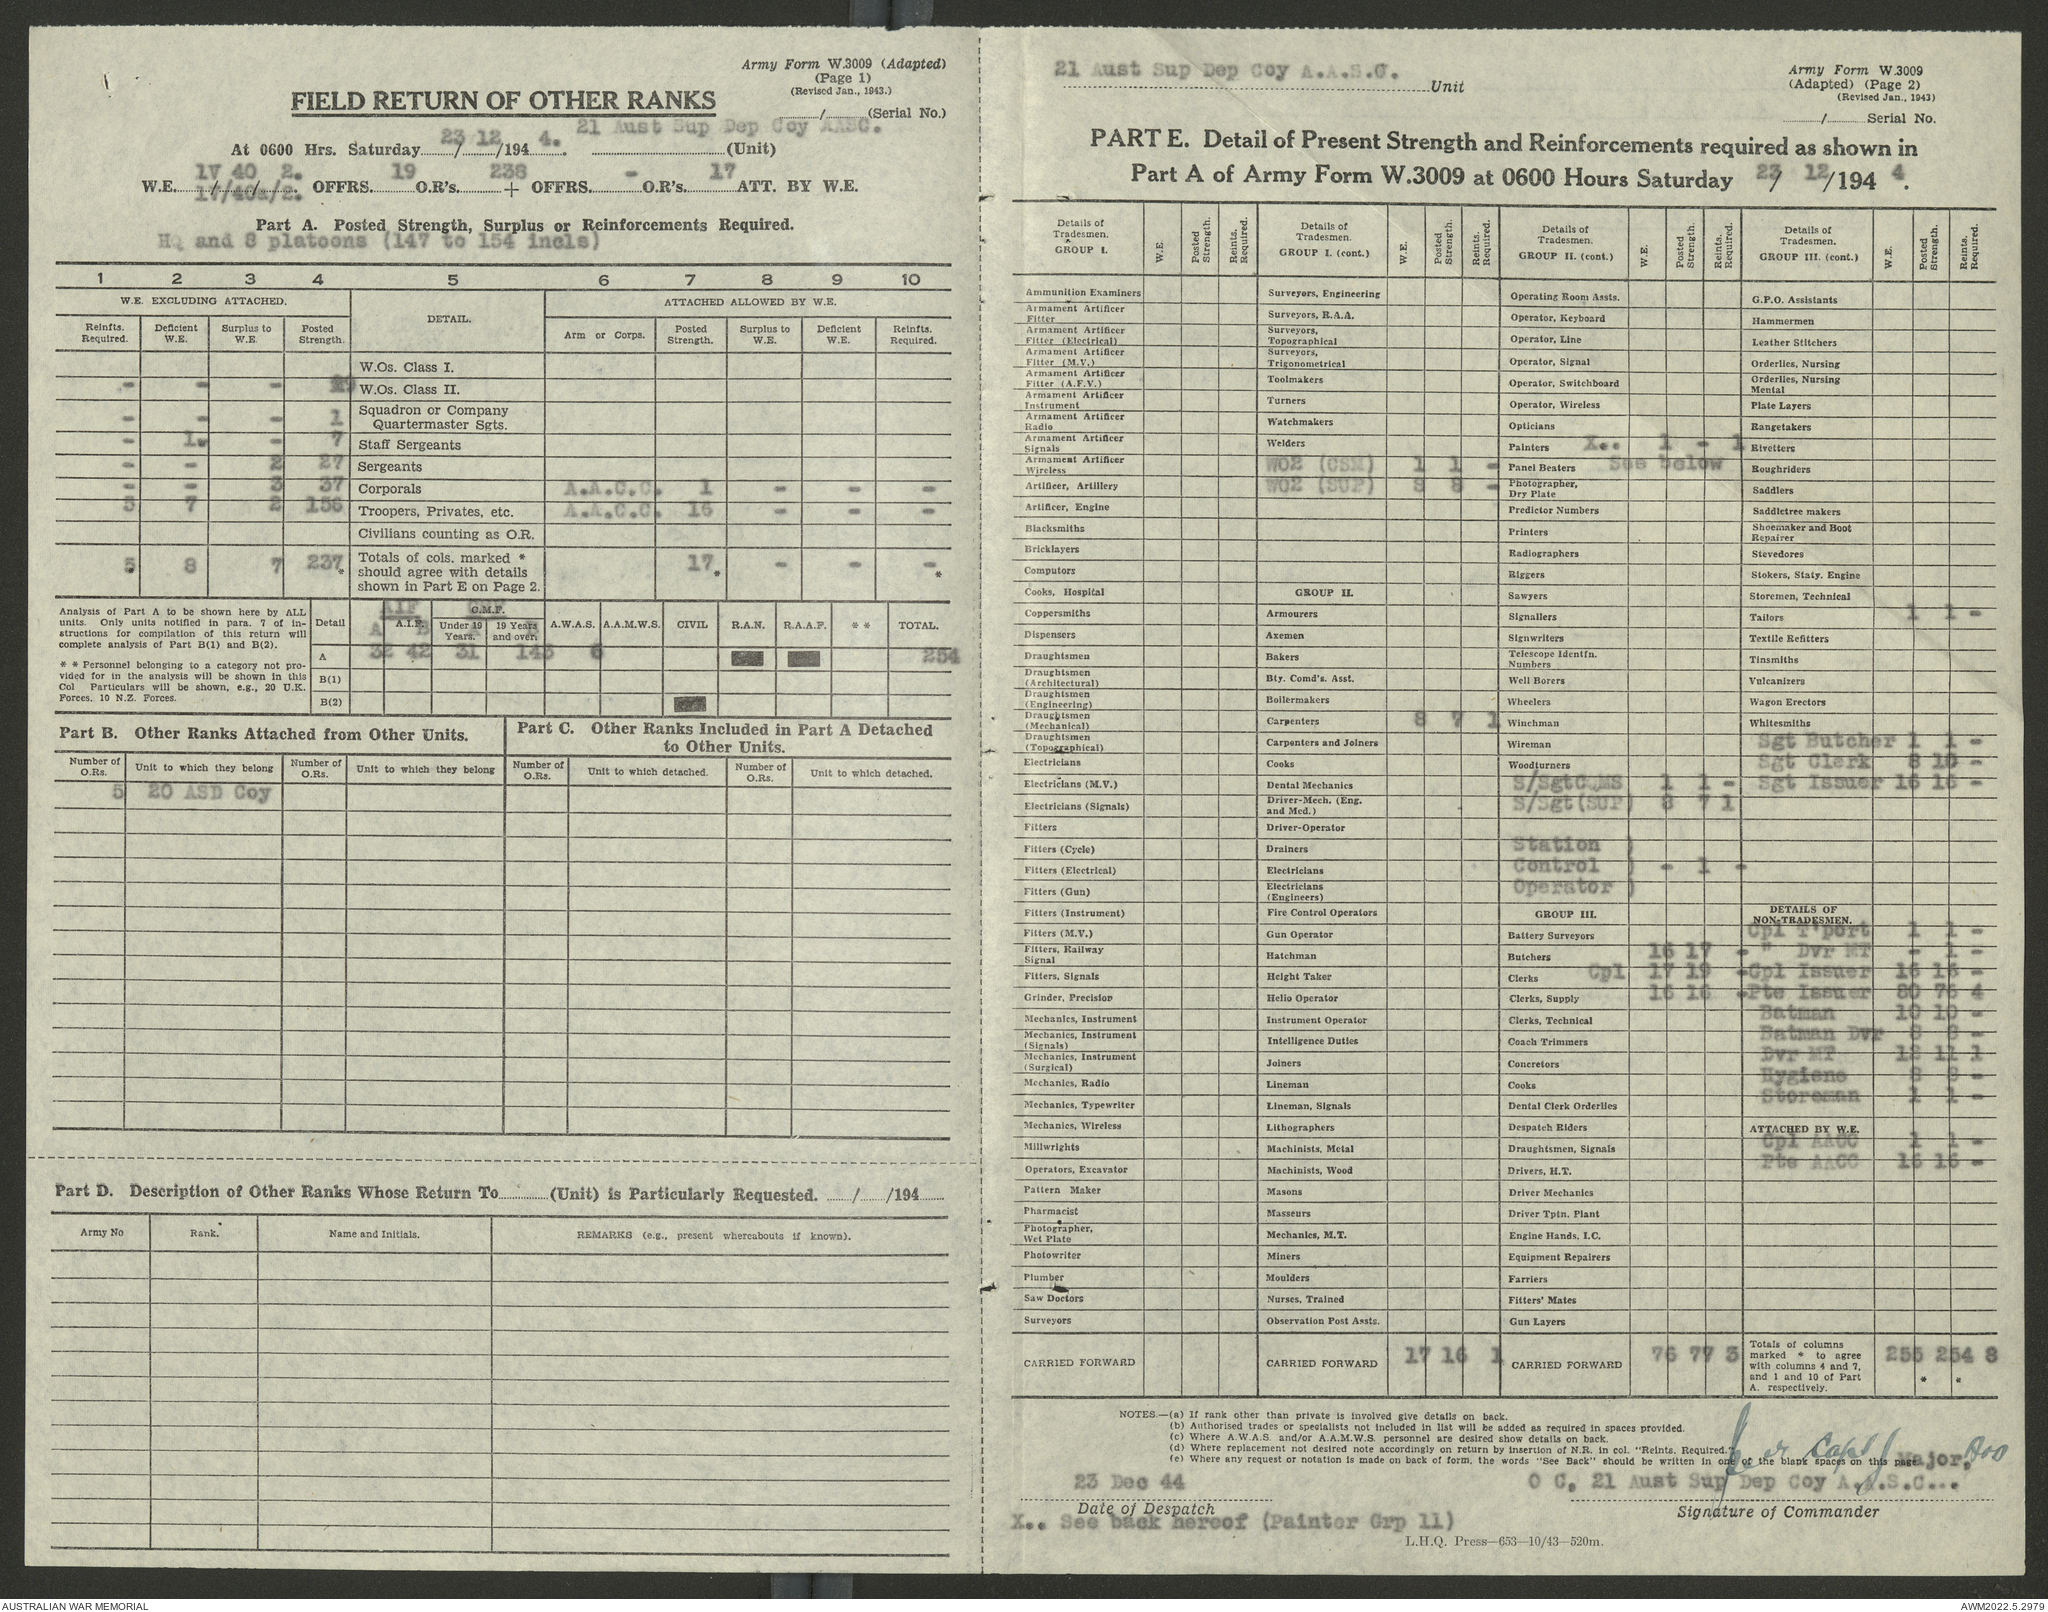 Army Form W.3009 (Adapted)
(Page 1)
(Revised Jan., 1943.)
FIELD RETURN OF OTHER RANKS
....../...... (Serial No.)
At 0600 Hrs. Saturday 23/12/194 4. 21 Aust Sup Dep Coy AASC. (Unit)
1V 40 2.
W.E. 1V/40a/2. OFFRS. 19 O.R's. 238 + OFFRS. - O.R's. 17 ATT. BY W.E.
Part A. Posted Strength, Surplus or Reinforcements Required.
HQ and 8 platoons (147 to 154 incls)
1 2 3 4 5 6 7 8 9 10
W.E. EXCLUDING ATTACHED. DETAIL. ATTACHED ALLOWED BY W.E.
Reinfts. Required. Deficient W.E. Surplus to W.E. Posted Strength. Arm or Corps. Posted Strength. Surplus to W.E. Deficient W.E. Reinfts. Required.
W.Os. Class I.
- - - W.Os. Class II.
- - - 1 Squadron or Company Quartermaster Sgts.
- 1. - 7 Staff Sergeants
- - 2 27 Sergeants
- - 3 37 Corporals A.A.C.C. 1 - - -
5 7 2 156 Troopers, Privates, etc. A.A.C.C. 16 - - -
Civilians counting as O.R.
5* 8 7 237* Totals of cols. marked * should agree with details shown in Part E on Page 2. 17* - - -*
Analysis of Part A to be shown here by ALL units. Only units notified in para. 7 of instructions for compilation of this return will complete analysis of Part B(1) and B(2).
* * Personnel belonging to a category not provided for in the analysis will be shown in this Col Particulars will be shown, e.g., 20 U.K. Forces, 10 N.Z. Forces.
Detail AIF A.I.F. A B C.M.F. Under 19 Years. 19 Years and over. A.W.A.S. A.A.M.W.S. CIVIL R.A.N. R.A.A.F. * * TOTAL.
A 32 42 31 143 6 254
B(1)
B(2)
Part B. Other Ranks Attached from Other Units.
Part C. Other Ranks Included in Part A Detached to Other Units.
Number of O.Rs. Unit to which they belong Number of O.Rs. Unit to which they belong Number of O.Rs. Unit to which detached. Number of O.Rs. Unit to which detached.
5 20 ASD Coy
Part D. Description of Other Ranks Whose Return To............(Unit) is Particularly Requested. ....../....../194......
Army No Rank. Name and Initials. REMARKS (e.g., present whereabouts if known).
21 Aust Sup Dep Coy A.A.S.C. Unit
Army Form W.3009
(Adapted) (Page 2)
(Revised Jan., 1943)
....../...... Serial No.
PART E. Detail of Present Strength and Reinforcements required as shown in
Part A of Army Form W.3009 at 0600 Hours Saturday 23/12/194 4.
Details of Tradesmen. GROUP I. W.E. Posted Strength. Reints. Required.
Ammunition Examiners
Armament Artificer Fitter
Armament Artificer Fitter (Electrical)
Armament Artificer Fitter (M.V.)
Armament Artificer Fitter (A.F.V.)
Armament Artificer Instrument
Armament Artificer Radio
Armament Artificer Signals
Armament Artificer Wireless
Artificer, Artillery
Artificer, Engine
Blacksmiths
Bricklayers
Computors
Cooks, Hospital
Coppersmiths
Dispensers
Draughtsmen
Draughtsmen (Architectural)
Draughtsmen (Engineering)
Draughtsmen (Mechanical)
Draughtsmen (Topographical)
Electricians
Electricians (M.V.)
Electricians (Signals)
Fitters
Fitters (Cycle)
Fitters (Electrical)
Fitters (Gun)
Fitters (Instrument)
Fitters (M.V.)
Fitters, Railway Signal
Fitters, Signals
Grinder, Precision
Mechanics, Instrument
Mechanics, Instrument (Signals)
Mechanics, Instrument (Surgical)
Mechanics, Radio
Mechanics, Typewriter
Mechanics, Wireless
Millwrights
Operators, Excavator
Pattern Maker
Pharmacist
Photographer, Wet Plate
Photowriter
Plumber
Saw Doctors
Surveyors
CARRIED FORWARD
Details of Tradesmen. GROUP I. (cont.) W.E. Posted Strength. Reints. Required.
Surveyors, Engineering
Surveyors, R.A.A.
Surveyors, Topographical
Surveyors, Trigonometrical
Toolmakers
Turners
Watchmakers
Welders
WO2 (CSM) 1 1 -
WO2 (SUP) 8 8 -
GROUP II.
Armourers
Axemen
Bakers
Bty. Comd's. Asst.
Boilermakers
Carpenters 8 7 1
Carpenters and Joiners
Cooks
Dental Mechanics
Driver-Mech. (Eng. and Med.)
Driver-Operator
Drainers
Electricians
Electricians (Engineers)
Fire Control Operators
Gun Operator
Hatchman
Height Taker
Helio Operator
Instrument Operator
Intelligence Duties
Joiners
Lineman
Lineman, Signals
Lithographers
Machinists, Metal
Machinists, Wood
Masons
Masseurs
Mechanics, M.T.
Miners
Moulders
Nurses, Trained
Observation Post Assts.
CARRIED FORWARD 17 16 1
Details of Tradesmen. GROUP II. (cont.) W.E. Posted Strength. Reints. Required.
Operating Room Assts.
Operator, Keyboard
Operator, Line
Operator, Signal
Operator, Switchboard
Operator, Wireless
Opticians
Painters X.. 1 - 1
Panel Beaters See below
Photographer, Dry Plate
Predictor Numbers
Printers
Radiographers
Riggers
Sawyers
Signallers
Signwriters
Telescope Identfn. Numbers
Well Borers
Wheelers
Winchman
Wireman
Woodturners
S/SgtCQMS 1 1 -
S/Sgt(SUP) 8 7 1
Station )
Control ) - 1 -
Operator )
GROUP III.
Battery Surveyors
Butchers 16 17 -
Clerks Cpl 17 19 -
Clerks, Supply 16 16 -
Clerks, Technical
Coach Trimmers
Concretors
Cooks
Dental Clerk Orderlies
Despatch Riders
Draughtsmen, Signals
Drivers, H.T.
Driver Mechanics
Driver Tptn. Plant
Engine Hands, I.C.
Equipment Repairers
Farriers
Fitters' Mates
Gun Layers
CARRIED FORWARD 76 77 3
Details of Tradesmen. GROUP III. (cont.) W.E. Posted Strength. Reints. Required.
G.P.O. Assistants
Hammermen
Leather Stitchers
Orderlies, Nursing
Orderlies, Nursing Mental
Plate Layers
Rangetakers
Rivetters
Roughriders
Saddlers
Saddletree makers
Shoemaker and Boot Repairer
Stevedores
Stokers, Staty. Engine
Storemen, Technical
Tailors 1 1 -
Textile Refitters
Tinsmiths
Vulcanizers
Wagon Erectors
Whitesmiths
Sgt Butcher 1 1 -
Sgt Clerk 8 10 -
Sgt Issuer 16 16 -
DETAILS OF NON-TRADESMEN.
Cpl T'port 1 1 -
" Dvr MT - 1 -
Cpl Issuer 16 16 -
Pte Issuer 80 76 4
Batman 10 10 -
Batman Dvr 8 8 -
Dvr MT 12 11 1
Hygiene 8 8 -
Storeman 1 1 -
ATTACHED BY W.E.
Cpl AACC 1 1 -
Pte AACC 16 16 -
Totals of columns marked * to agree with columns 4 and 7, and 1 and 10 of Part A. respectively. 255 254 8
* *
NOTES.—(a) If rank other than private is involved give details on back.
(b) Authorised trades or specialists not included in list will be added as required in spaces provided.
(c) Where A.W.A.S. and/or A.A.M.W.S. personnel are desired show details on back.
(d) Where replacement not desired note accordingly on return by insertion of N.R. in col. "Reints. Required."
(e) Where any request or notation is made on back of form, the words "See Back" should be written in one of the blank spaces on this page.
Capt Major,
23 Dec 44 O C, 21 Aust Sup Dep Coy A.A.S.C...
Date of Despatch Signature of Commander
X.. See back hereof (Painter Grp 11)
L.H.Q. Press—653—10/43—520m.
AUSTRALIAN WAR MEMORIAL AWM2022.5.2979